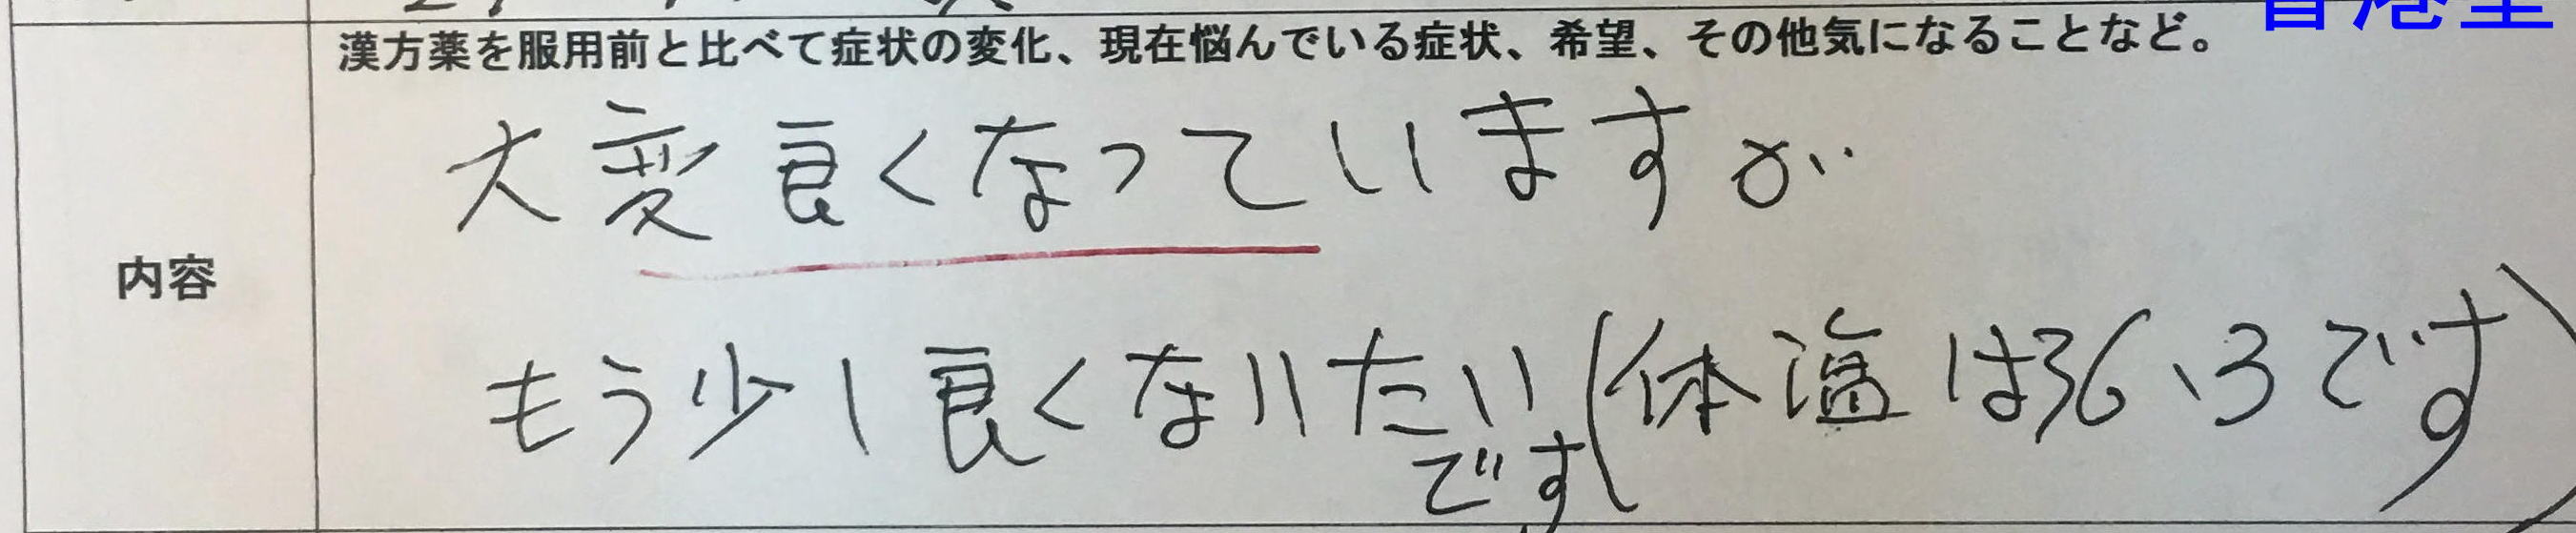 漢方薬を服用前と比べて症状の変化、現在悩んでいる症状、希望、その他気になることなど。
内容
大変良くなっていますが
もう少し良くなりたい
です
(体温は36、3です)